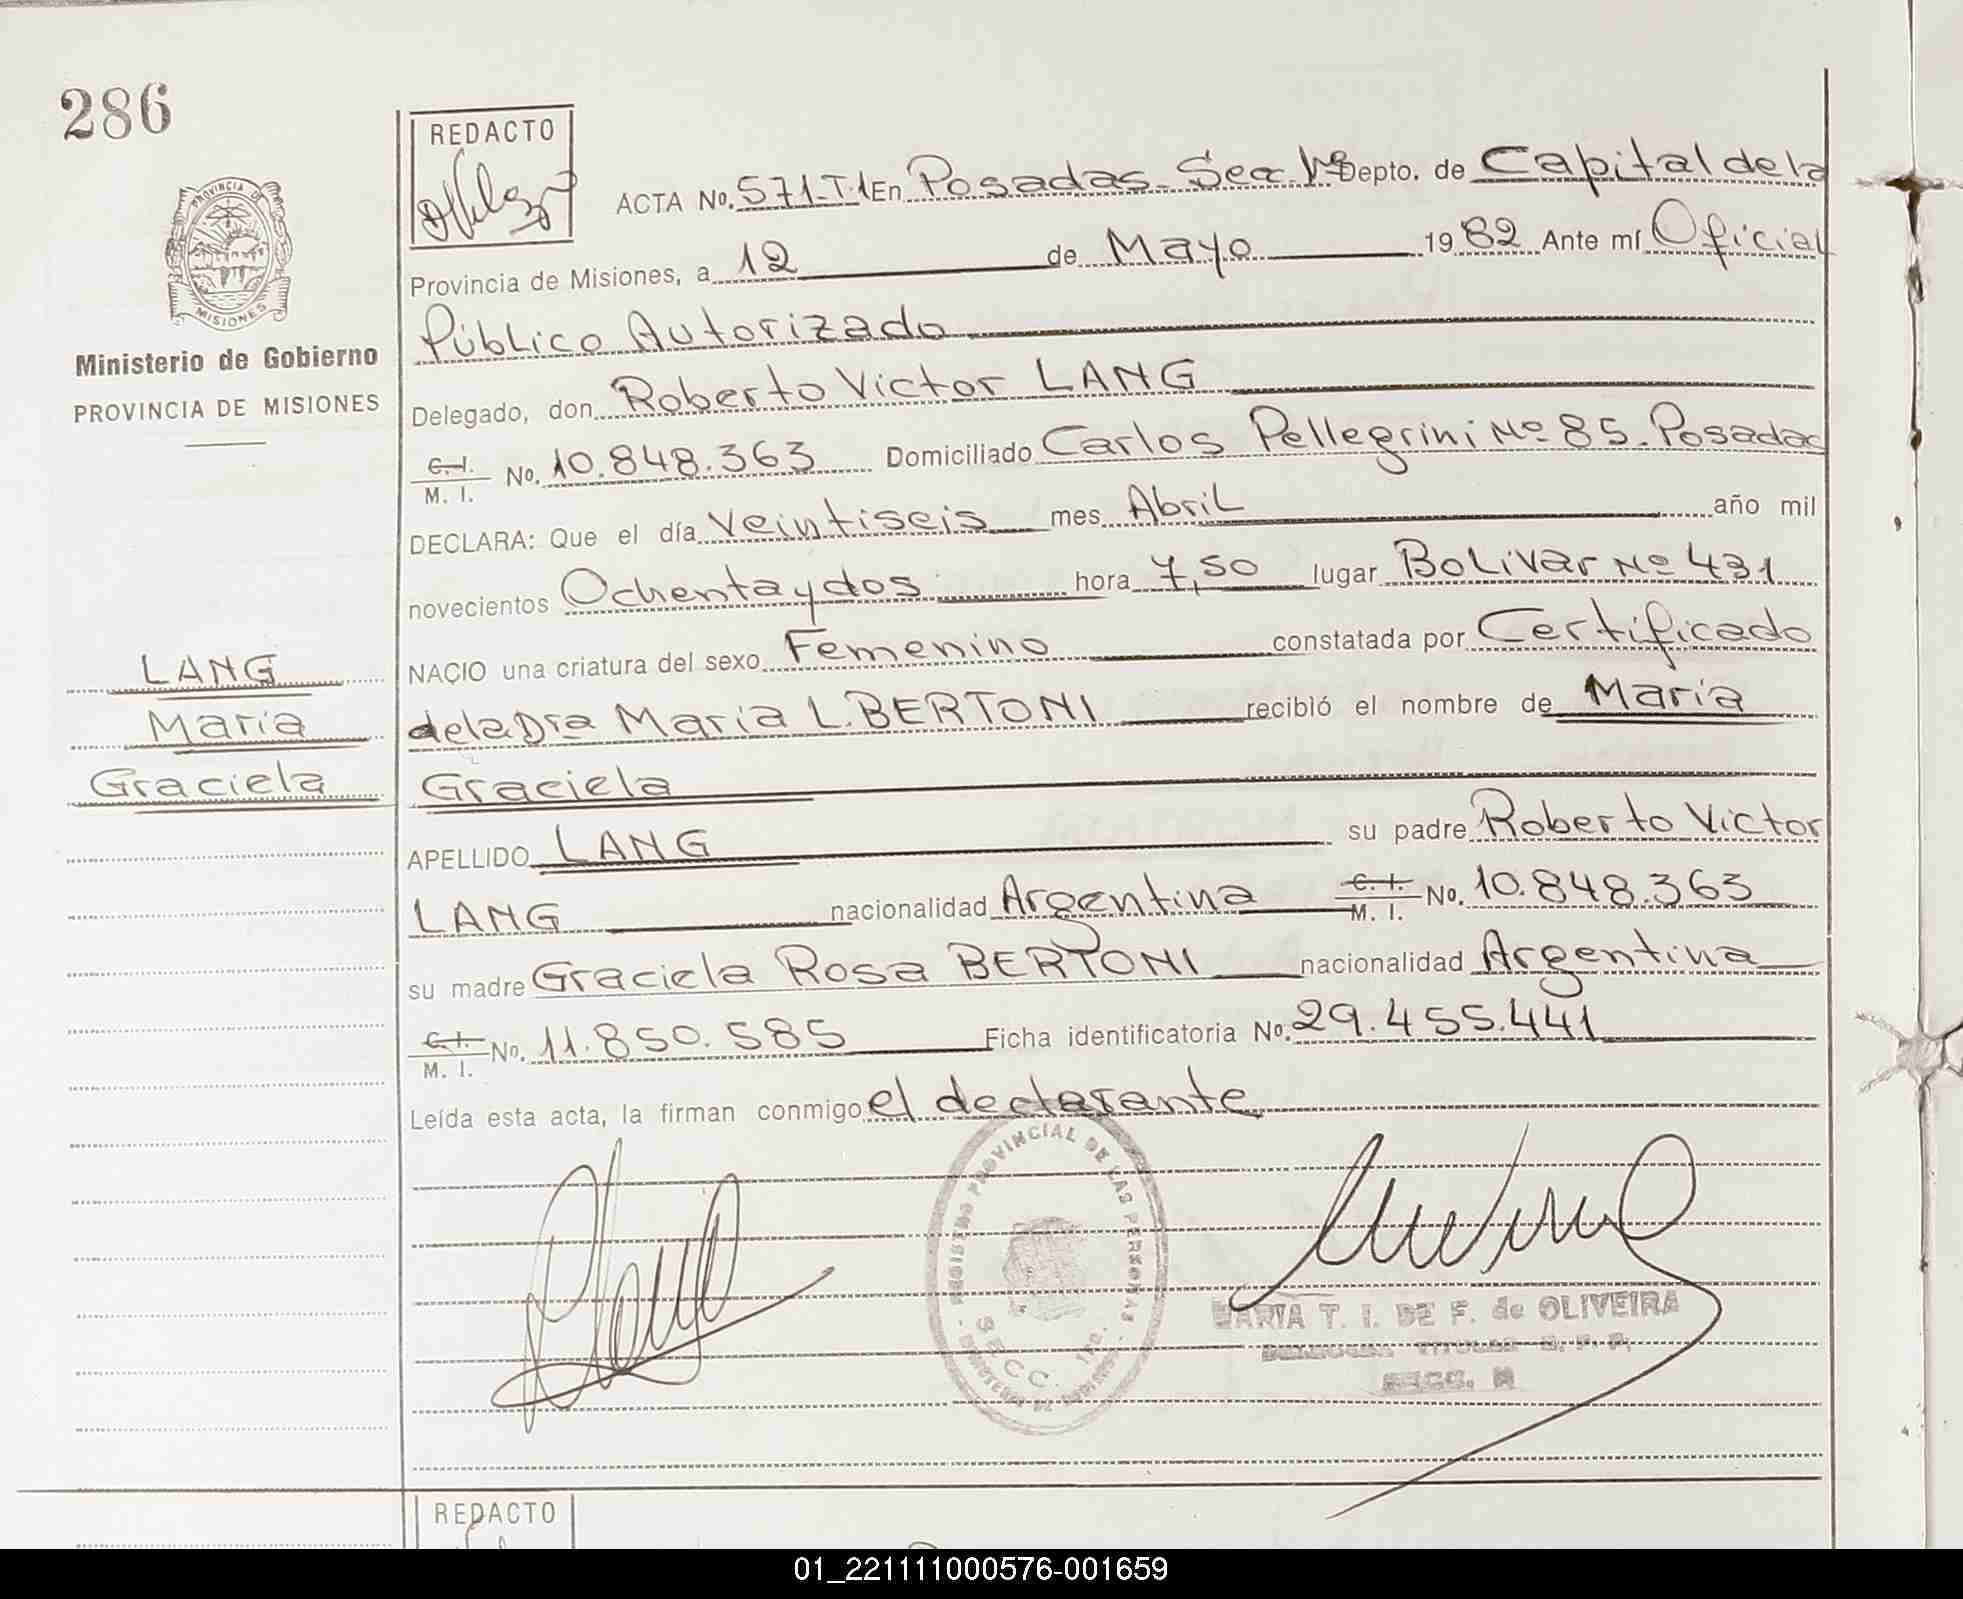 286
REDACTO
PROVINCIA DE
MISIONES
Ministerio de Gobierno
PROVINCIA DE MISIONES
ACTA No. 571-T.1 En Posadas. Sec. 1ª Depto. de Capital de la
Provincia de Misiones, a 12 de Mayo 1982 Ante mí Oficial
Público Autorizado
Delegado, don Roberto Victor LANG
C. I.
M. I. No. 10.848.363 Domiciliado Carlos Pellegrini Nº 85. Posadas
DECLARA: Que el día veintiseis mes Abril año mil
novecientos Ochenta y dos hora 7,50 lugar Bolivar Nº 431
NACIO una criatura del sexo Femenino constatada por Certificado
de la Dra Maria L. BERTONI recibió el nombre de María
Graciela
APELLIDO LANG su padre Roberto Victor
LANG nacionalidad Argentina C. I. M. I. No. 10.848.363
su madre Graciela Rosa BERTONI nacionalidad Argentina
C. I. M. I. No. 11.850.585 Ficha identificatoria No. 29.455.441
Leída esta acta, la firman conmigo el declarante
LANG
María
Graciela
REGISTRO PROVINCIAL DE LAS PERSONAS
SECC. 1ra.
MARIA T. I. DE F. de OLIVEIRA
REDACTO
01_221111000576-001659